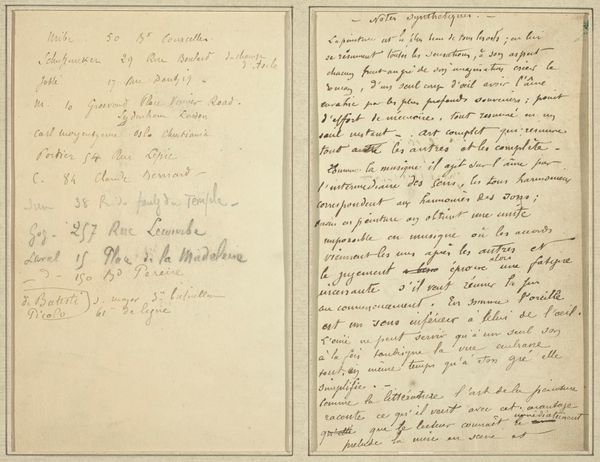 Mirbe 50 Bd Courcelles
Schuffenecker 29 Rue Boulard
Jobbé 17 Rue
M. 10 Grosvenor Place Road.
Sydenham London
Oslo Christiania
Portier 54 Rue Lépic
C. 84 Claude Bernard
38 R. du faubg du Temple
257 Rue Lecourbe
Laval 15 Place de la Madeleine
150 Bd Pereire
Dicolo
major 3e bataillon
61e de ligne
Notes Synthétiques. —
La peinture est le plus beau de tous les arts ; en lui
se résument toutes les sensations, à son aspect
chacun peut au gré de son imagination créer le
roman, d'un seul coup d'œil avoir l'âme
envahie par les plus profonds souvenirs ; point
d'effort de mémoire, tout résumé en un
seul instant — . art complet qui résume
tous les autres et les complète —
Comme la musique il agit sur l'âme par
l'intermédiaire des sens, les tons harmonieux
correspondent aux harmonies des sons ;
mais en peinture on obtient une unité
impossible en musique où les accords
viennent les uns après les autres et
le jugement éprouve alors une fatigue
incessante s'il veut réunir la fin
au commencement. En somme l'oreille
est un sens inférieur à celui de l'œil.
L'ouïe ne peut servir qu'à un seul son
à la fois tandisque la vue embrasse
tout, en même temps qu'à son gré elle
simplifie. —
Comme la littérature l'art de la peinture
raconte ce qu'il veut avec cet avantage
que le lecteur connait immédiatement
prélude la mise en scène et